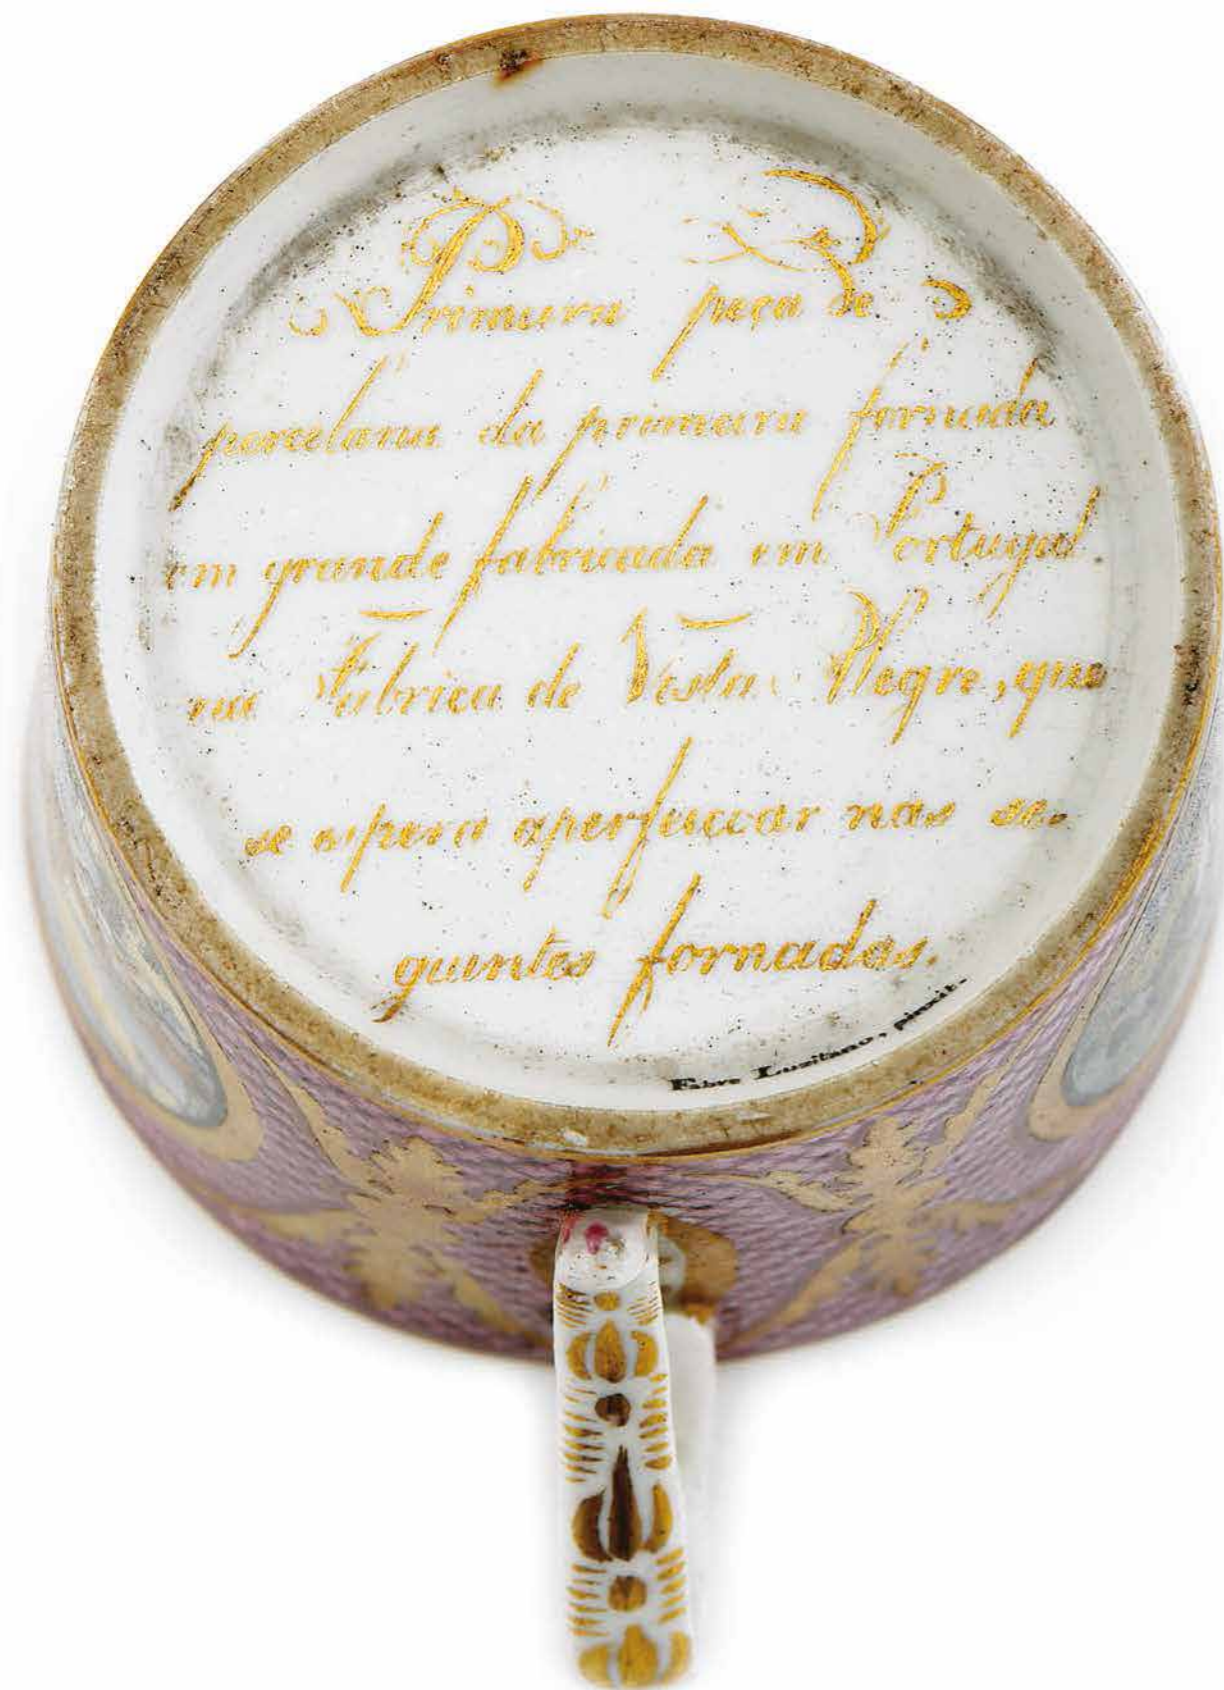 Primeira peça de
porcelana da primeira fornada
em grande fabricada em Portugal
na Fabrica de Vista Alegre, que
se espera aperfeiçoar nas se-
guintes fornadas.
Fabre Luzitano, pinxit.